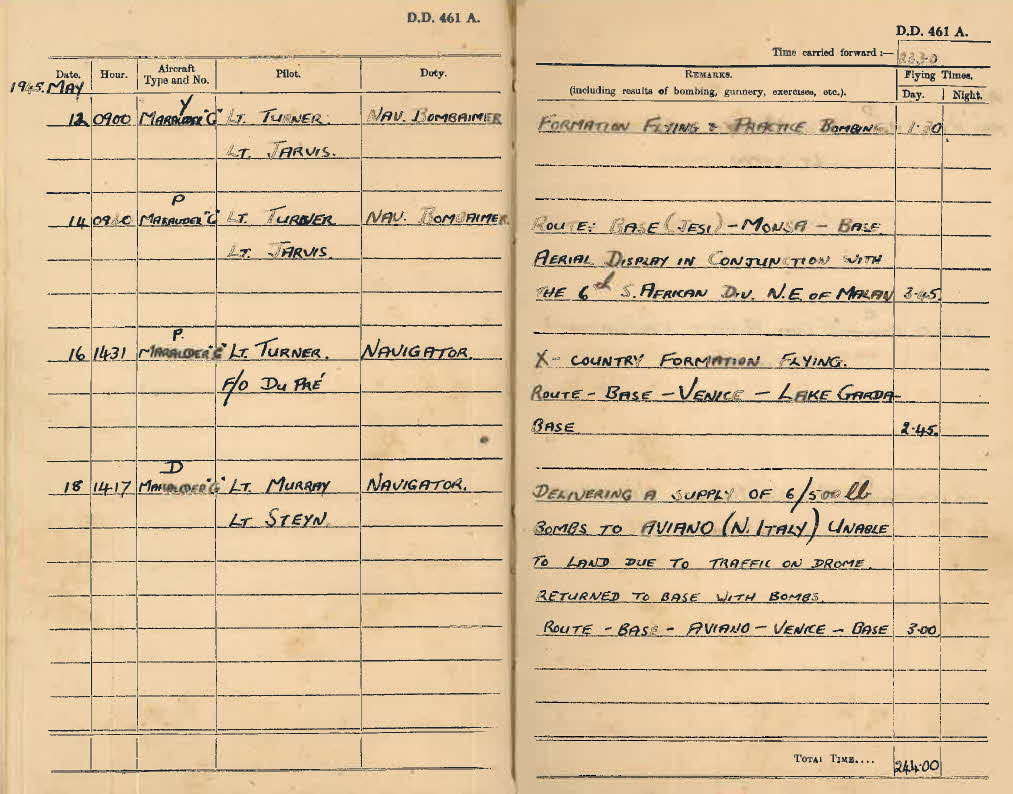 D.D. 461 A.
Date. Hour. Aircraft Type and No. Pilot. Duty.
1945. MAY
Y
12 0900 MARAUDER "G" LT. TURNER. NAV. BOMBAIMER
LT. JARVIS.
P
14 MARAUDER "G" LT. TURNER NAV. BOMBAIMER.
LT. JARVIS
P.
16 1431 MARAUDER "G" LT. TURNER. NAVIGATOR.
F/O DU PRÉ
D
18 1417 MARAUDER "G" LT. MURRAY NAVIGATOR.
LT STEYN.
D.D. 461 A.
Time carried forward :—
REMARKS. Flying Times.
(including results of bombing, gunnery, exercises, etc.). Day. Night.
FORMATION FLYING & PRACTICE BOMBING 1.30
ROUTE: BASE (JESI) – MONSA – BASE.
AERIAL DISPLAY IN CONJUNCTION WITH
THE 6th S. AFRICAN DIV. N.E. OF MALAN 3.45.
X- COUNTRY FORMATION FLYING.
ROUTE – BASE – VENICE – LAKE GARDA–
BASE 2.45.
DELIVERING A SUPPLY OF 6/500 lb
BOMBS TO AVIANO (N. ITALY) UNABLE
TO LAND DUE TO TRAFFIC ON DROME.
RETURNED TO BASE WITH BOMBS.
ROUTE – BASE – AVIANO – VENICE – BASE 3.00
TOTAL TIME.... 244.00